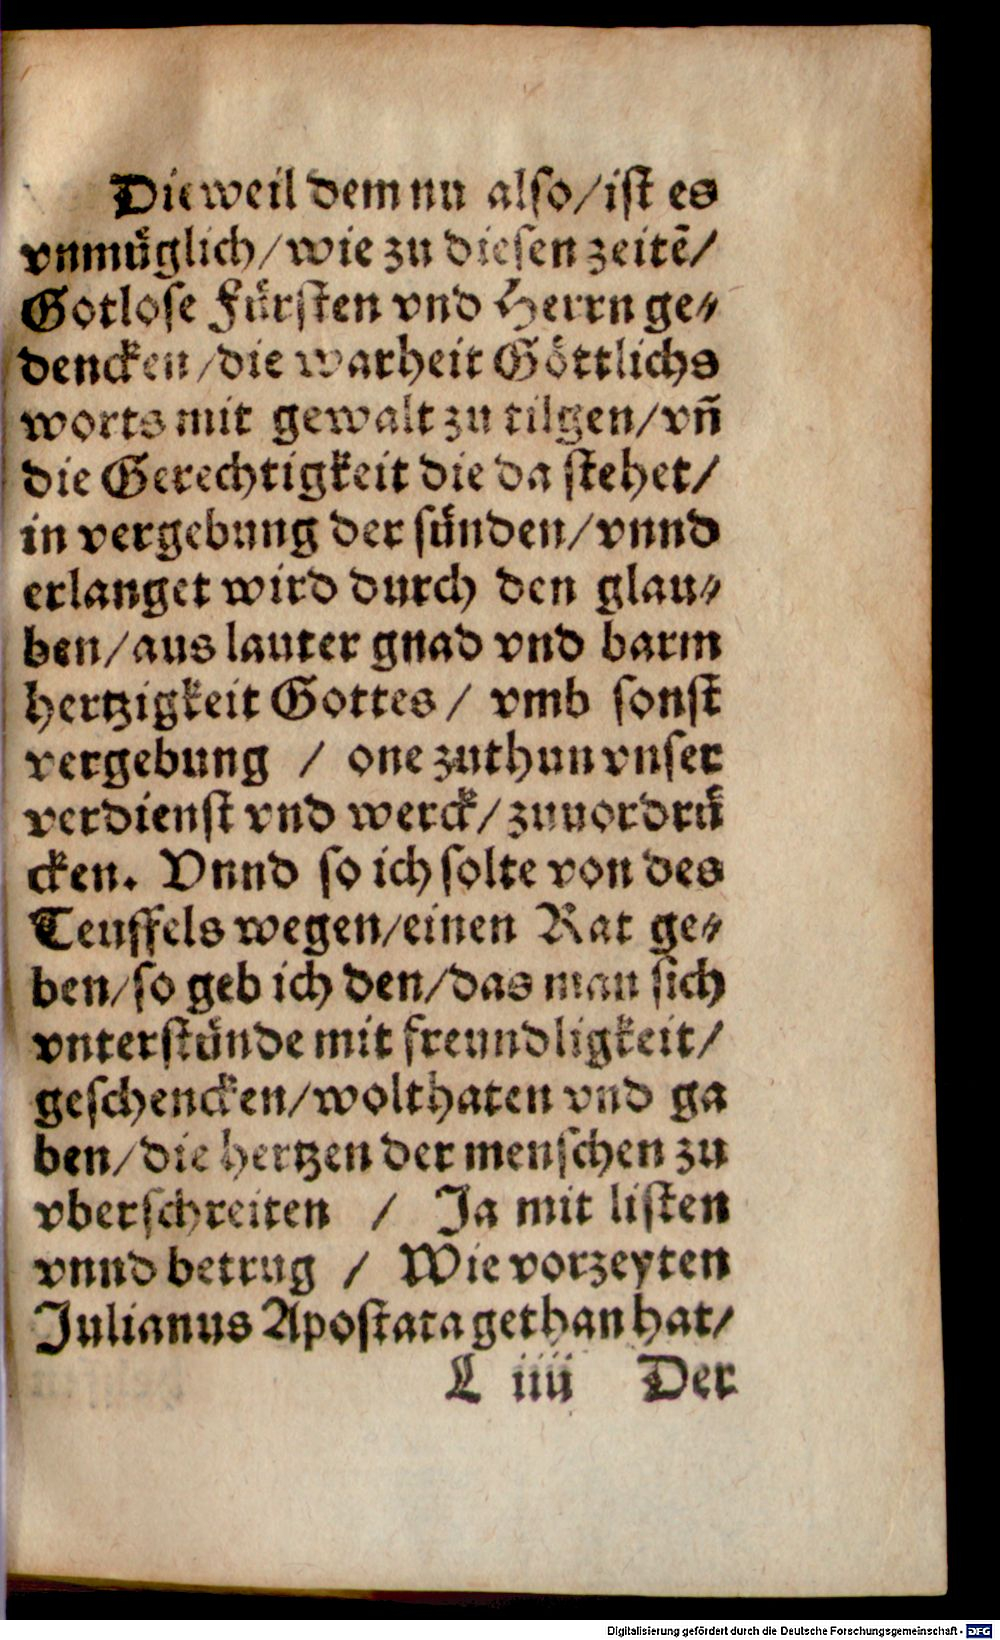 Dieweil dem nu also/ist es
vnmüglich/wie zu diesen zeitē/
Gotlose Fürsten vnd Herrn ge⸗
dencken/die warheit Göttlichs
worts mit gewalt zu tilgen/vn̄
die Gerechtigkeit die da stehet/
in vergebung der sünden/vnnd
erlanget wird durch den glau⸗
ben/aus lauter gnad vnd barm
hertzigkeit Gottes / vmb sonst
vergebung / one zuthun vnser
verdienst vnd werck/zuuordrü
cken. Vnnd so ich solte von des
Teuffels wegen/einen Rat ge⸗
ben/so geb ich den/das man sich
vnterstünde mit freundligkeit/
geschencken/wolthaten vnd ga
ben/die hertzen der menschen zu
vberschreiten / Ja mit listen
vnnd betrug / Wie vorzeyten
Julianus Apostata gethan hat/
L iiij Der
Digitalisierung gefördert durch die Deutsche Forschungsgemeinschaft - DFG